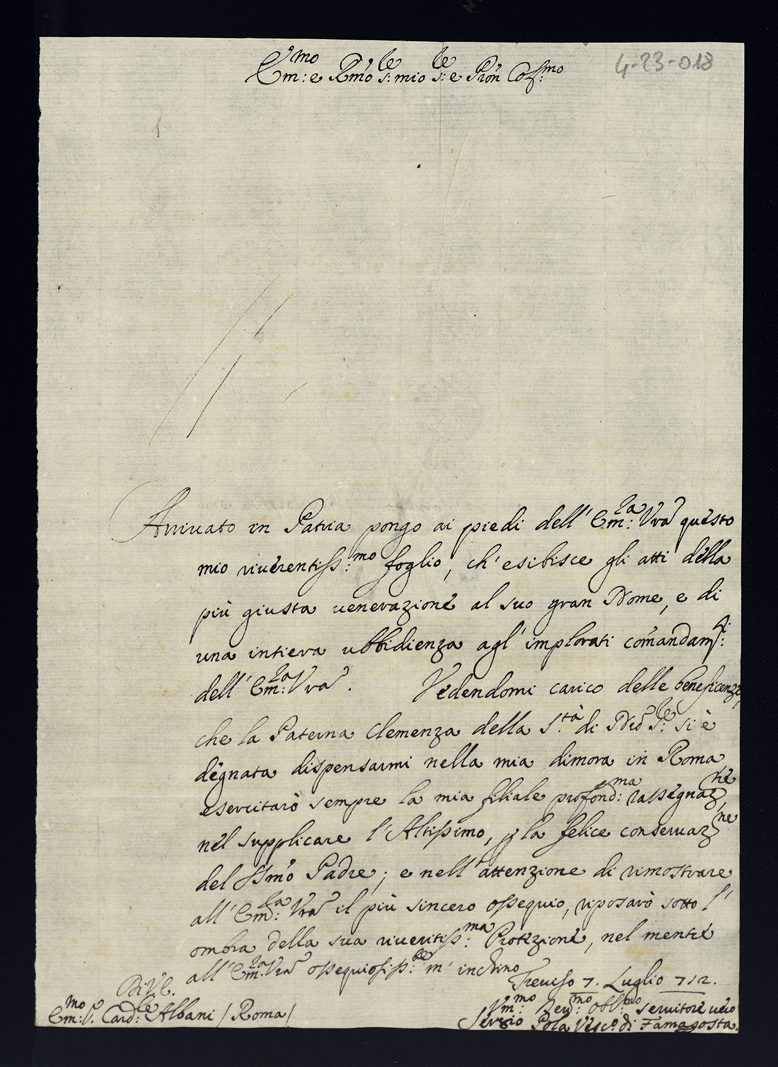 4-23-018
Em:mo e Rmo s:re mio s:re e Pron Col:mo
Arrivato in Patria pongo ai piedi dell' Em:za Vra questo
mio riverentiss:mo foglio, ch' esibisce gli atti della
più giusta venerazione al suo gran Nome, e di
una intiera ubbidienza agl' implorati comandam:ti
dell' Em:za Vra. Vedendomi carico delle beneficenze,
che la Paterna Clemenza della S.tà di Nro S.re si è
degnata dispensarmi nella mia dimora in Roma
esercitarò sempre la mia filiale profond:ma rassegnaz:ne
nel supplicare l' Altissimo, p la felice conservaz:ne
del Ssmo Padre; e nell' attenzione di rimostrare
all' Em:za Vra il più sincero ossequio, riposarò sotto l'
ombra della sua riveritiss:ma Protezione, nel mentre
all' Em:za Vra ossequiosiss:te m' inchino
Di V. E.
Treviso 7. Luglio 712.
Em:mo S. Card:le Albani / Roma /
Vm:mo Dev:mo obl:mo servitore vero
Sergio Pola Vesc:o di Famagosta